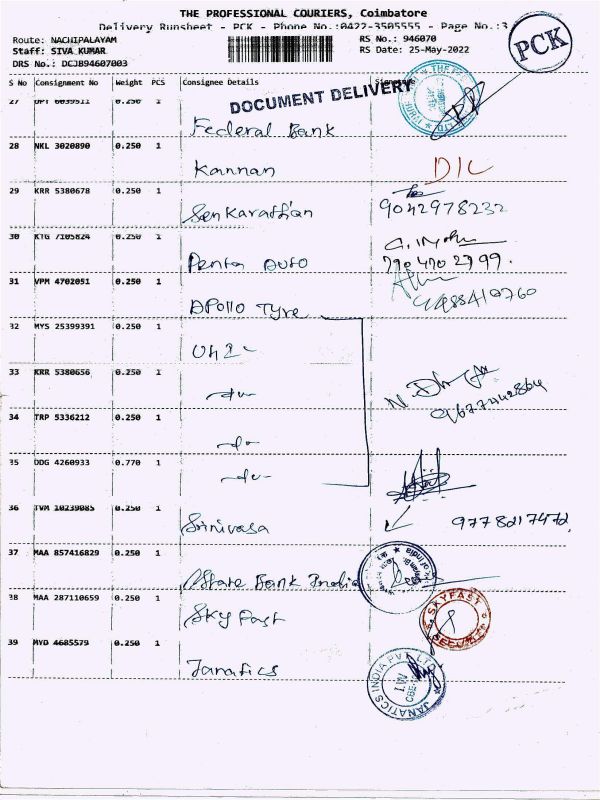 THE PROFESSIONAL COURIERS, Coimbatore
Delivery Runsheet - PCK - Phone No.:0422-3505555 - Page No.:3
PCK
Route: NACHIPALAYAM
RS No.: 946070
Staff: SIVA KUMAR
RS Date: 25-May-2022
DRS No.: DCJB94607003
S No Consignment No Weight PCS Consignee Details Signature
DOCUMENT DELIVERY
27 0.250 1
Federal Bank
28 NKL 3020890 0.250 1
Kannan D/C
29 KRR 5380678 0.250 1
9042978232
30 KTG 7105824 0.250 1
Penta Auto
31 VPM 4702051 0.250 1
Apollo Tyre
32 MYS 25399391 0.250 1
33 KRR 5380656 0.250 1
34 TRP 5336212 0.250 1
do
35 DDG 4260933 0.770 1
do
36 TVM 10239085 0.250 1
Srinivasa 9778217472
37 MAA 857416829 0.250 1
State Bank India
38 MAA 287110659 0.250 1
Sky Fast
SKYFAST SECURITY
39 MYD 4685579 0.250 1
Janatics
JANATICS INDIA PVT LTD